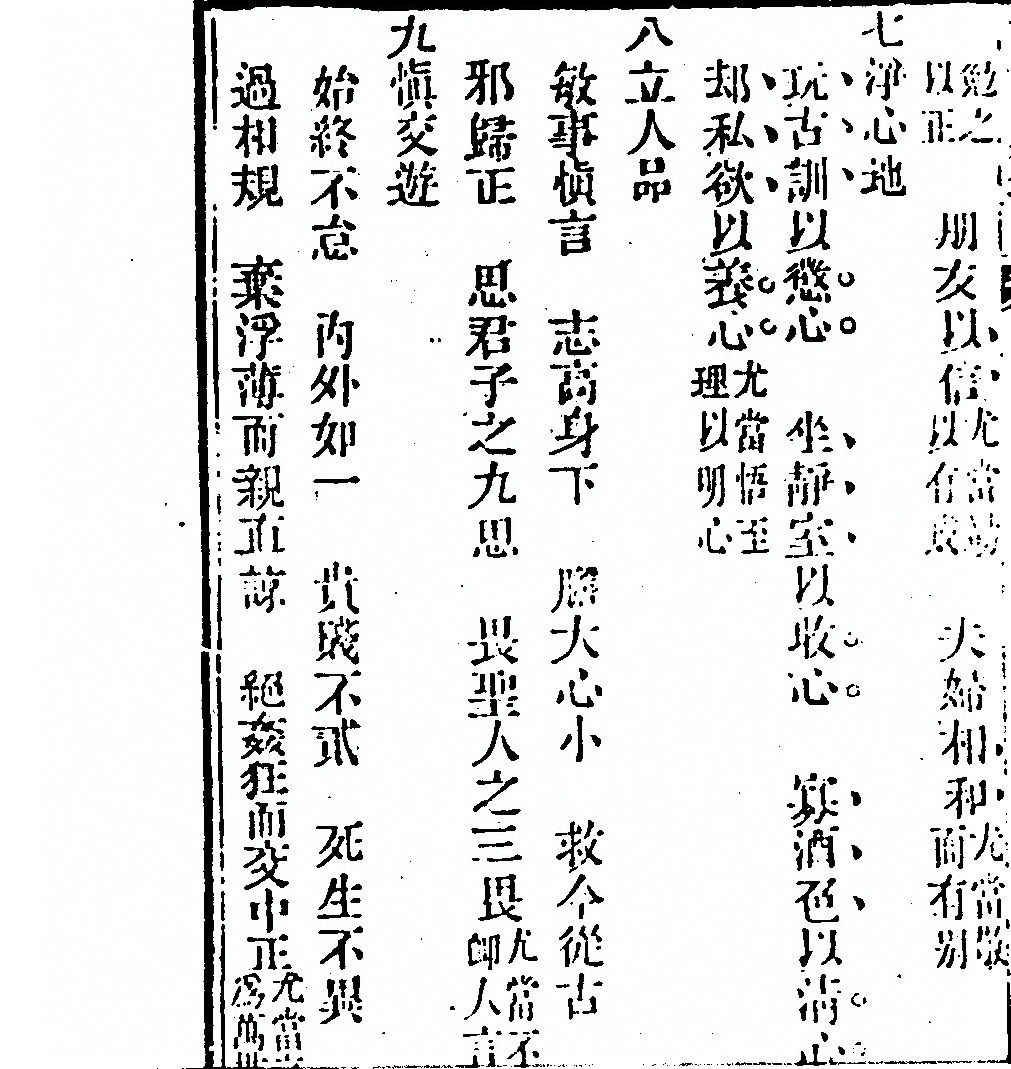 勉之以正　朋友以信尤當以有成　夫婦相和尤當敬而有別
七淨心地
玩古訓以懲心　坐靜室以收心　寡酒色以清心
却私欲以義心尤當悟至理以明心
八立人品
敏事慎言　志高身下　膽大心小　救今從古
邪歸正　思君子之九思　畏聖人之三畏尤當不卹人言
九慎交遊
始終不怠　內外如一　貴賤不貳　死生不異
過相規　棄浮薄而親直諒　絕姦狂而交中正尤當爲萬